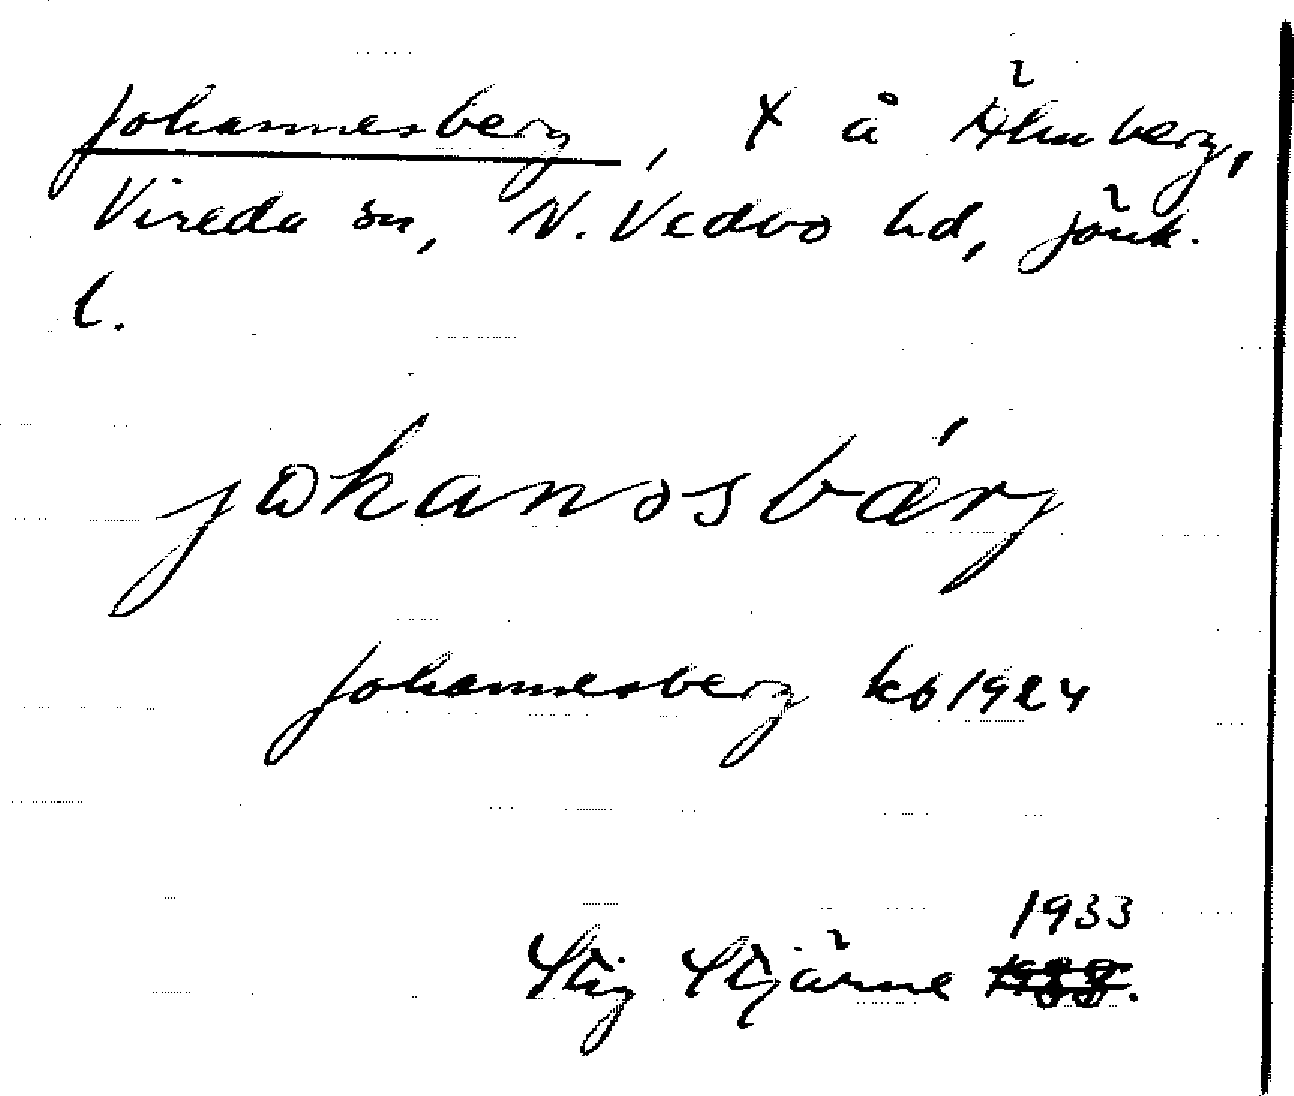 Johannesberg, X å Älmberg,
Vireda sn, N. Vedbo hd, Jönk.
l.
johanosbárj
Johannesberg kb 1924
1933
Stig Stjärne